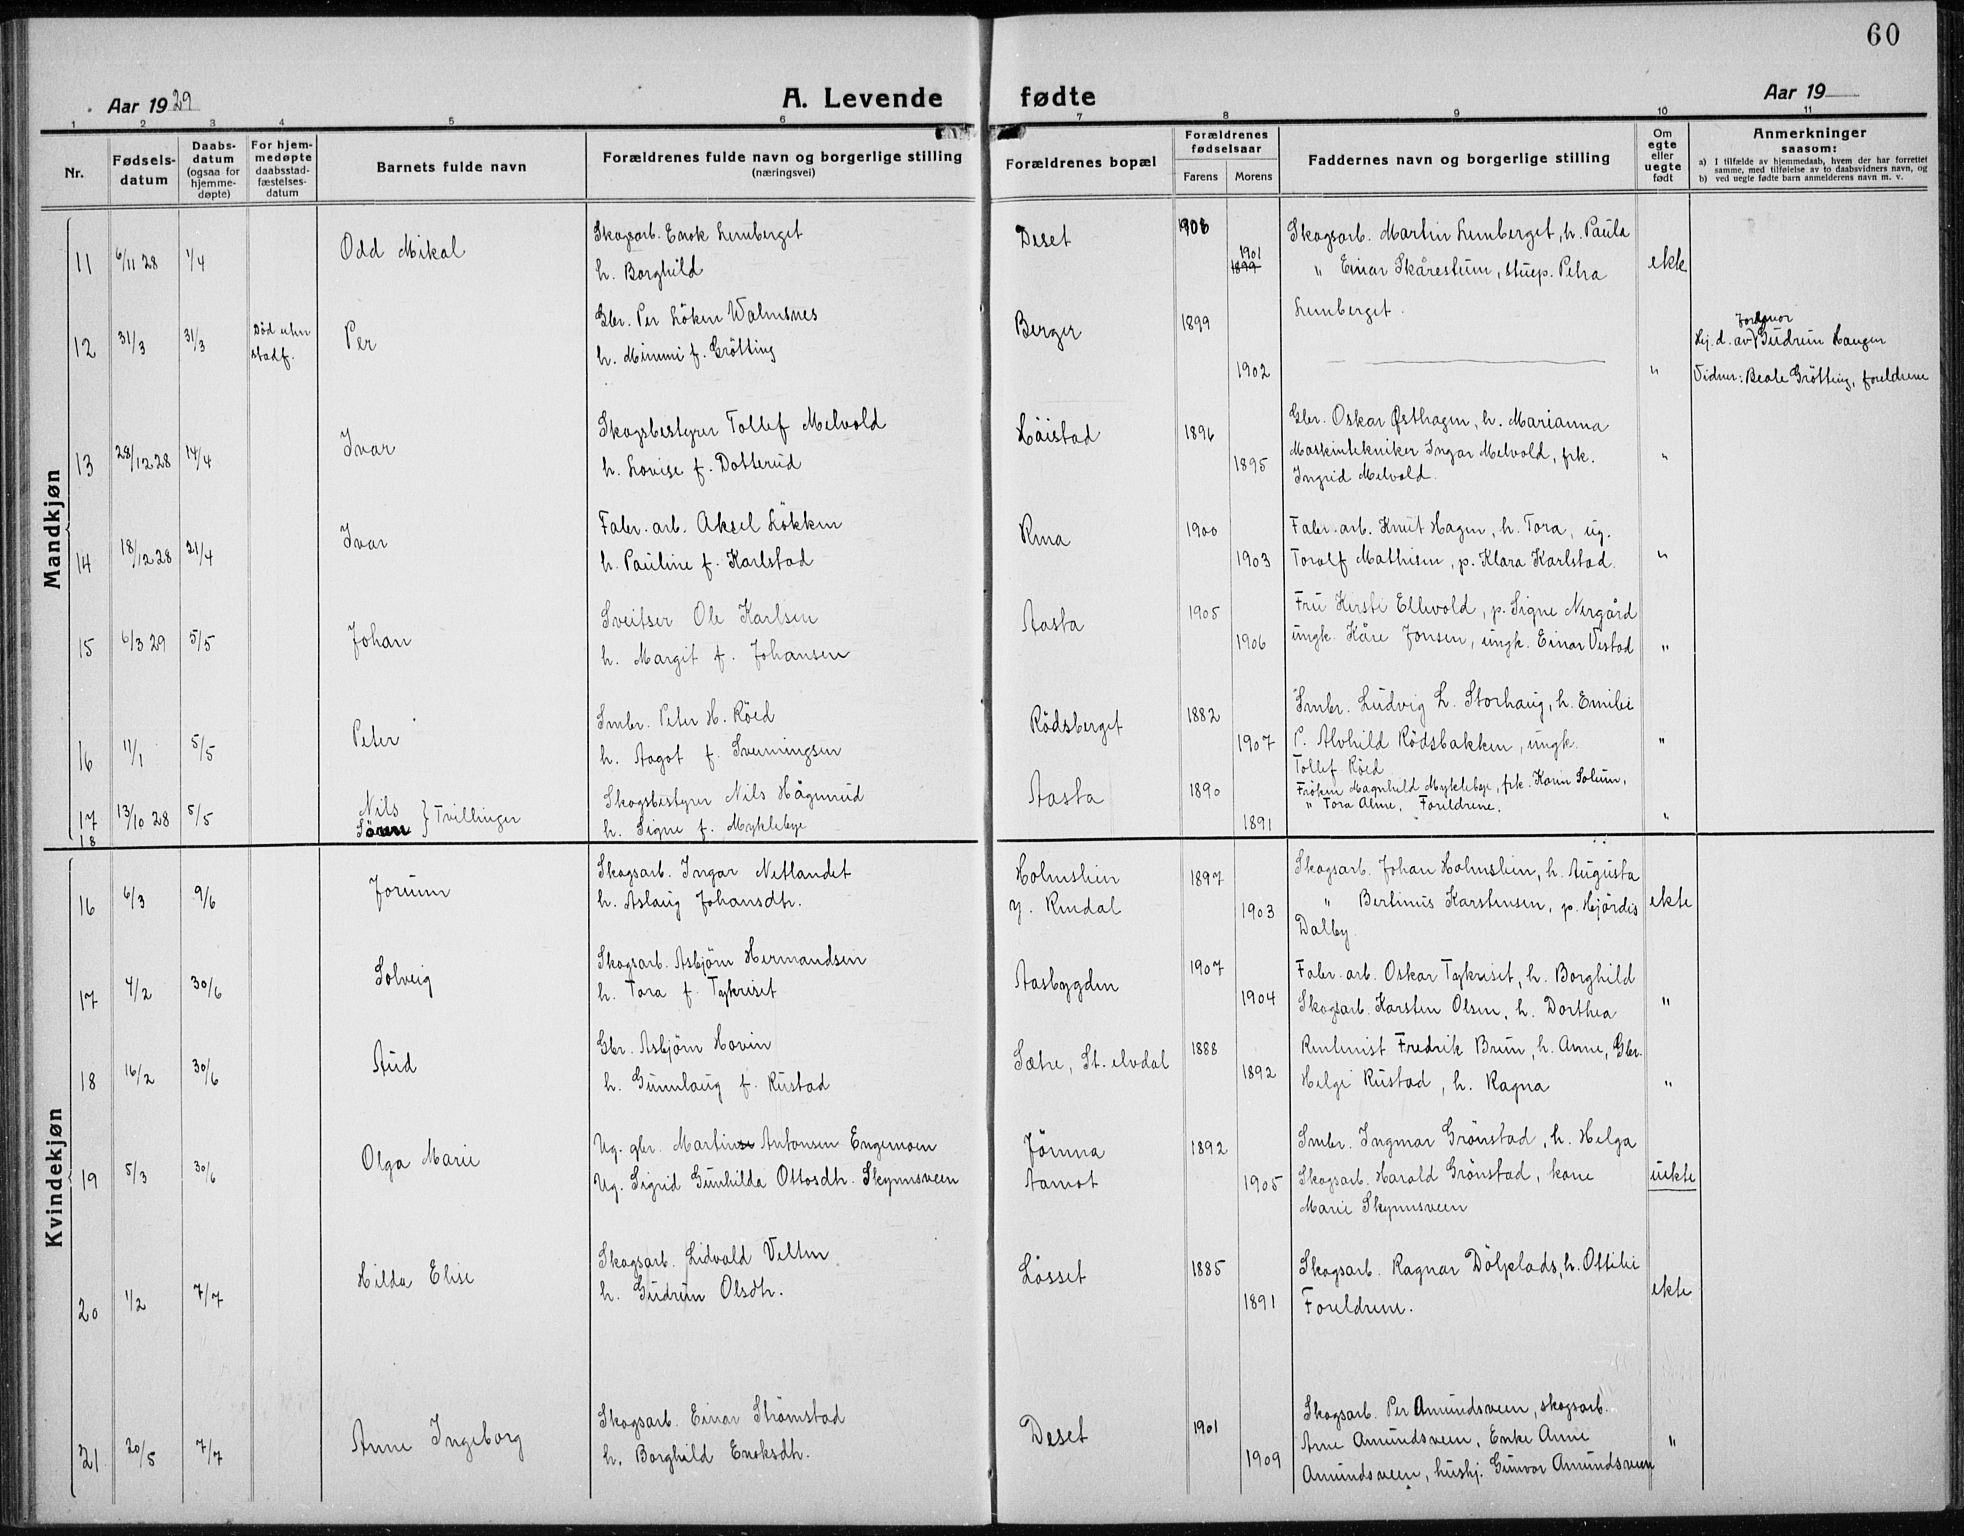 60
Aar 1929
A. Levende
fødte
Aar 19
1 2 3 4 5 6 7 8 9 10 11
Nr.
Fødsels-
datum
Daabs-
datum
(ogsaa for
hjemme-
døpte)
For hjem-
medøpte
daabsstad-
fæstelses-
datum
Barnets fulde navn
Forældrenes fulde navn og borgerlige stilling
(næringsvei)
Forældrenes bopæl
Forældrenes
fødselsaar
Farens Morens
Faddernes navn og borgerlige stilling
Om
egte
eller
uegte
født
Anmerkninger
saasom:
a) I tilfælde av hjemmedaab, hvem der har forrettet
samme, med tilføielse av to daabsvidners navn, og
b) ved uegte fødte barn anmelderens navn m. v.
Mandkjøn
11 6/11 28 1/4 Odd Mikal
Skogsarb. Enok Lemberget
h. Borghild
Deset 1908 1901 1899
Skogsarb. Martin Lemberget, h. Paula
" Einar Skårestum, stuep. Petra
Lemberget.
ekte
12 31/3 31/3 Død uten
stadf.
Per
Gbr. Per Löken Walmsnes
h. Mimmi f. Grötting
Berger 1899 1902
"
Jordmor
Hj. d. av Gudrun Haugen
Vidner: Beate Grötting, foreldrene
13 28/12 28 14/4 Ivar
Skogsbestyrer Tollef Melvold
h. Lovise f. Dotterud
Höistad 1896 1895
Gbr. Oskar Østhagen, h. Marianna
Maskintekniker Ingar Melvold, frk.
Ingrid Melvold.
"
14 18/12 28 21/4 Ivar
Fabr. arb. Aksel Lökken
h. Pauline f. Karlstad
Rena 1900 1903
Fabr. arb. Knut Hagen, h. Tora, ug.
Toralf Mathisen, p. Klara Karlstad.
"
15 6/3 29 5/5 Johan
Sveitser Ole Karlsen
h. Margit f. Johansen
Aasta 1905 1906
Fru Kersti Ellevold, p. Signe Nergård
ungk. Kåre Jonsen, ungk. Einar Vestad
"
16 11/1 5/5 Peter
Smbr. Peter H. Röed
h. Aagot f. Sveiningsen
Rödsberget 1882 1907
Smbr. Ludvig L. Storhaug, h. Emilie
P. Alvhild Rödsbakken, ungk.
Tollef Röed
"
17 13/10 28 5/5 Nils
18 Sören } Tvillinger
Skogsbestyrer Nils Hågenrud
h. Signe f. Myklebye
Aasta 1890 1891
Fröken Magnhild Myklebye, frk. Karin Solum,
" Tora Alme, Foreldrene.
"
Kvindekjøn
16 6/3 9/6 Jorunn
Skogsarb. Ingar Netlandet
h. Aslaug Johansdtr.
Holmslien
y. Rendal
1897 1903
Skogsarb. Johan Holmslien, h. Augusta
" Bertinius Karstensen, p. Hjördis
Dalby
ekte
17 4/2 30/6 Solveig
Skogsarb. Asbjörn Hermandsen
h. Tora f. Tykriset
Aasbygden 1907 1904
Fabr. arb. Oskar Tykriset, h. Borghild
Skogsarb. Karsten Olsen, h. Dorthea
"
18 16/2 30/6 Aud
Gbr. Asbjörn Hovin
h. Gunnlaug f. Rustad
Sætre, St. elvdal 1888 1892
Rentenist Fredrik Brun, h. Anne, Gbr.
Helge Rustad, h. Ragna
"
19 5/3 30/6 Olga Marie
Ug. gbr. Martin Antonsen Engemoen
Ug. Sigrid Gunhilda Ottosdtr. Skynnsveen
Jömna
Aamot
1892 1905
Smbr. Ingmar Grönstad, h. Helga
Skogsarb. Harald Grönstad, kone
Marie Skynnsveen
uekte
20 1/2 7/7 Hilda Elise
Skogsarb. Lidvald Velten
h. Gudrun Olsdtr.
Lösset 1885 1891
Skogsarb. Ragnar Dölplads, h. Ottilie
Foreldrene.
ekte
21 20/5 7/7 Anne Ingeborg
Skogsarb. Einar Strömstad
h. Borghild Enoksdtr.
Deset 1901 1909
Skogsarb. Per Amundsveen, skogsarb.
Arne Amundsveen, Enke Anne
Amundsveen, hushj. Gunvor Amundsveen
"